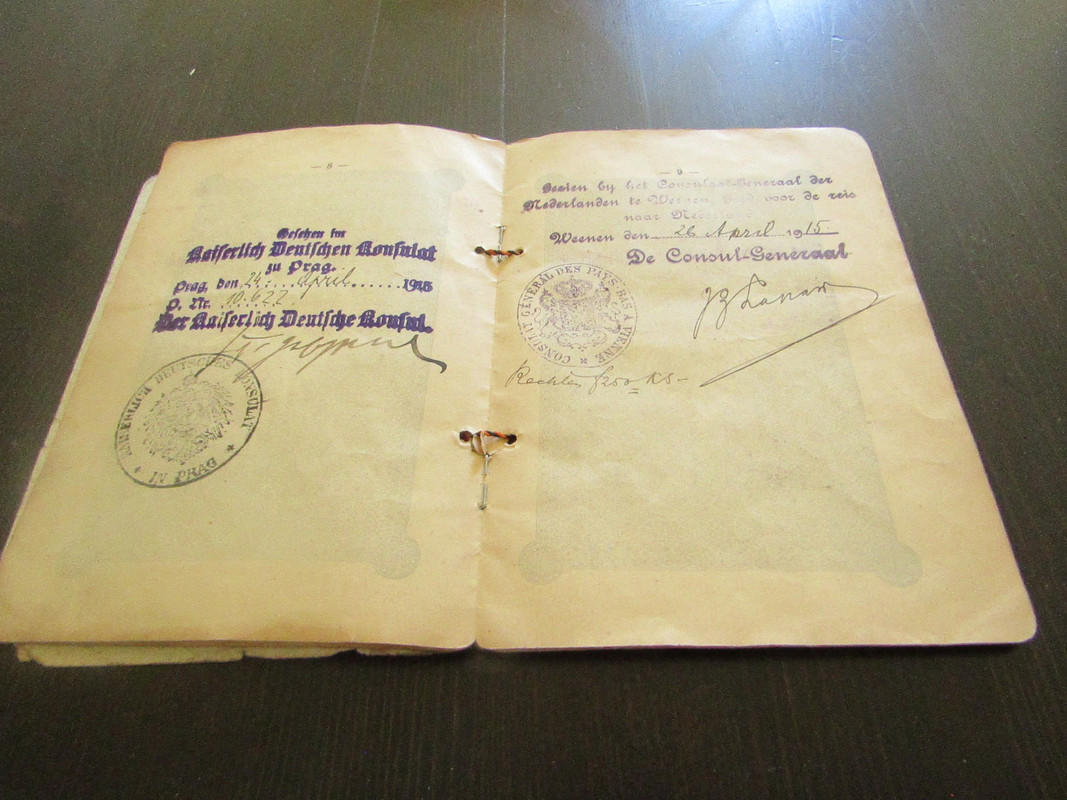 — 8 —
Gesehen im
Kaiserlich Deutschen Konsulat
zu Prag.
Prag, den 24. April 1915
P. Nr. 10.622
Der Kaiserlich Deutsche Konsul.
KAISERLICH DEUTSCHES KONSULAT
* IN PRAG *
— 9 —
Gezien bij het Consulaat-Generaal der
Nederlanden te Weenen, voor de reis
naar Nederland
Weenen den 26 April 1915
De Consul-Generaal
CONSULAT GÉNÉRAL DES PAYS-BAS À VIENNE *